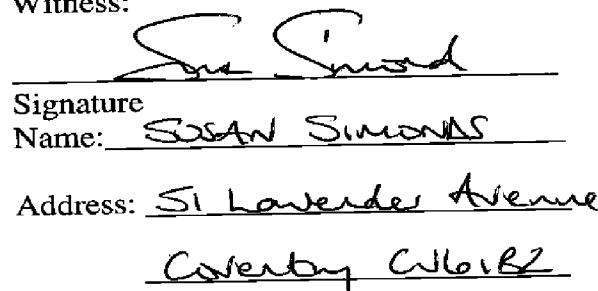 Witness:
Sue Simond
Signature
Name: SUSAN SIMONDS
Address: 51 Lavender Avenue
Coventry CV6 1BZ